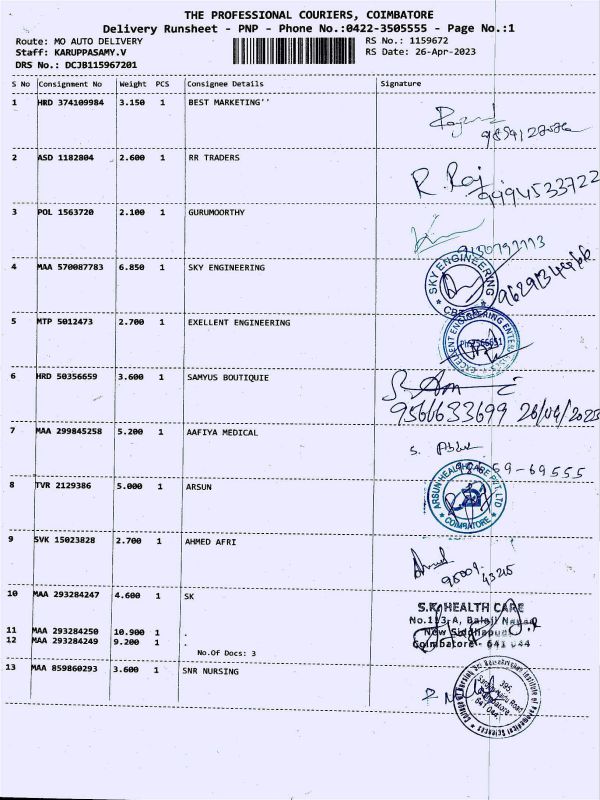 THE PROFESSIONAL COURIERS, COIMBATORE
Delivery Runsheet - PNP - Phone No.:0422-3505555 - Page No.:1
Route: MO AUTO DELIVERY RS No.: 1159672
Staff: KARUPPASAMY.V RS Date: 26-Apr-2023
DRS No.: DCJB115967201
S No Consignment No Weight PCS Consignee Details Signature
1 HRD 374109984 3.150 1 BEST MARKETING''
2 ASD 1182804 2.600 1 RR TRADERS
R. Raj
9994533722
3 POL 1563720 2.100 1 GURUMOORTHY
4 MAA 570087783 6.850 1 SKY ENGINEERING
SKY ENGINEERING
5 MTP 5012473 2.700 1 EXELLENT ENGINEERING
EXCELLENT ENGINEERING
6 HRD 50356659 3.600 1 SAMYUS BOUTIQUIE
9566633699 26/04/2023
7 MAA 299845258 5.200 1 AAFIYA MEDICAL
8 TVR 2129386 5.000 1 ARSUN
ARSUN HEALTHCARE PVT. LTD
COIMBATORE
9 SVK 15023828 2.700 1 AHMED AFRI
10 MAA 293284247 4.600 1 SK
S.K. HEALTH CARE
No.113-A, Balaji Nagar
New Siddhapudur
Coimbatore - 641 044
11 MAA 293284250 10.900 1 .
12 MAA 293284249 9.200 1 .
No.Of Docs: 3
13 MAA 859860293 3.600 1 SNR NURSING
395,
641 044.